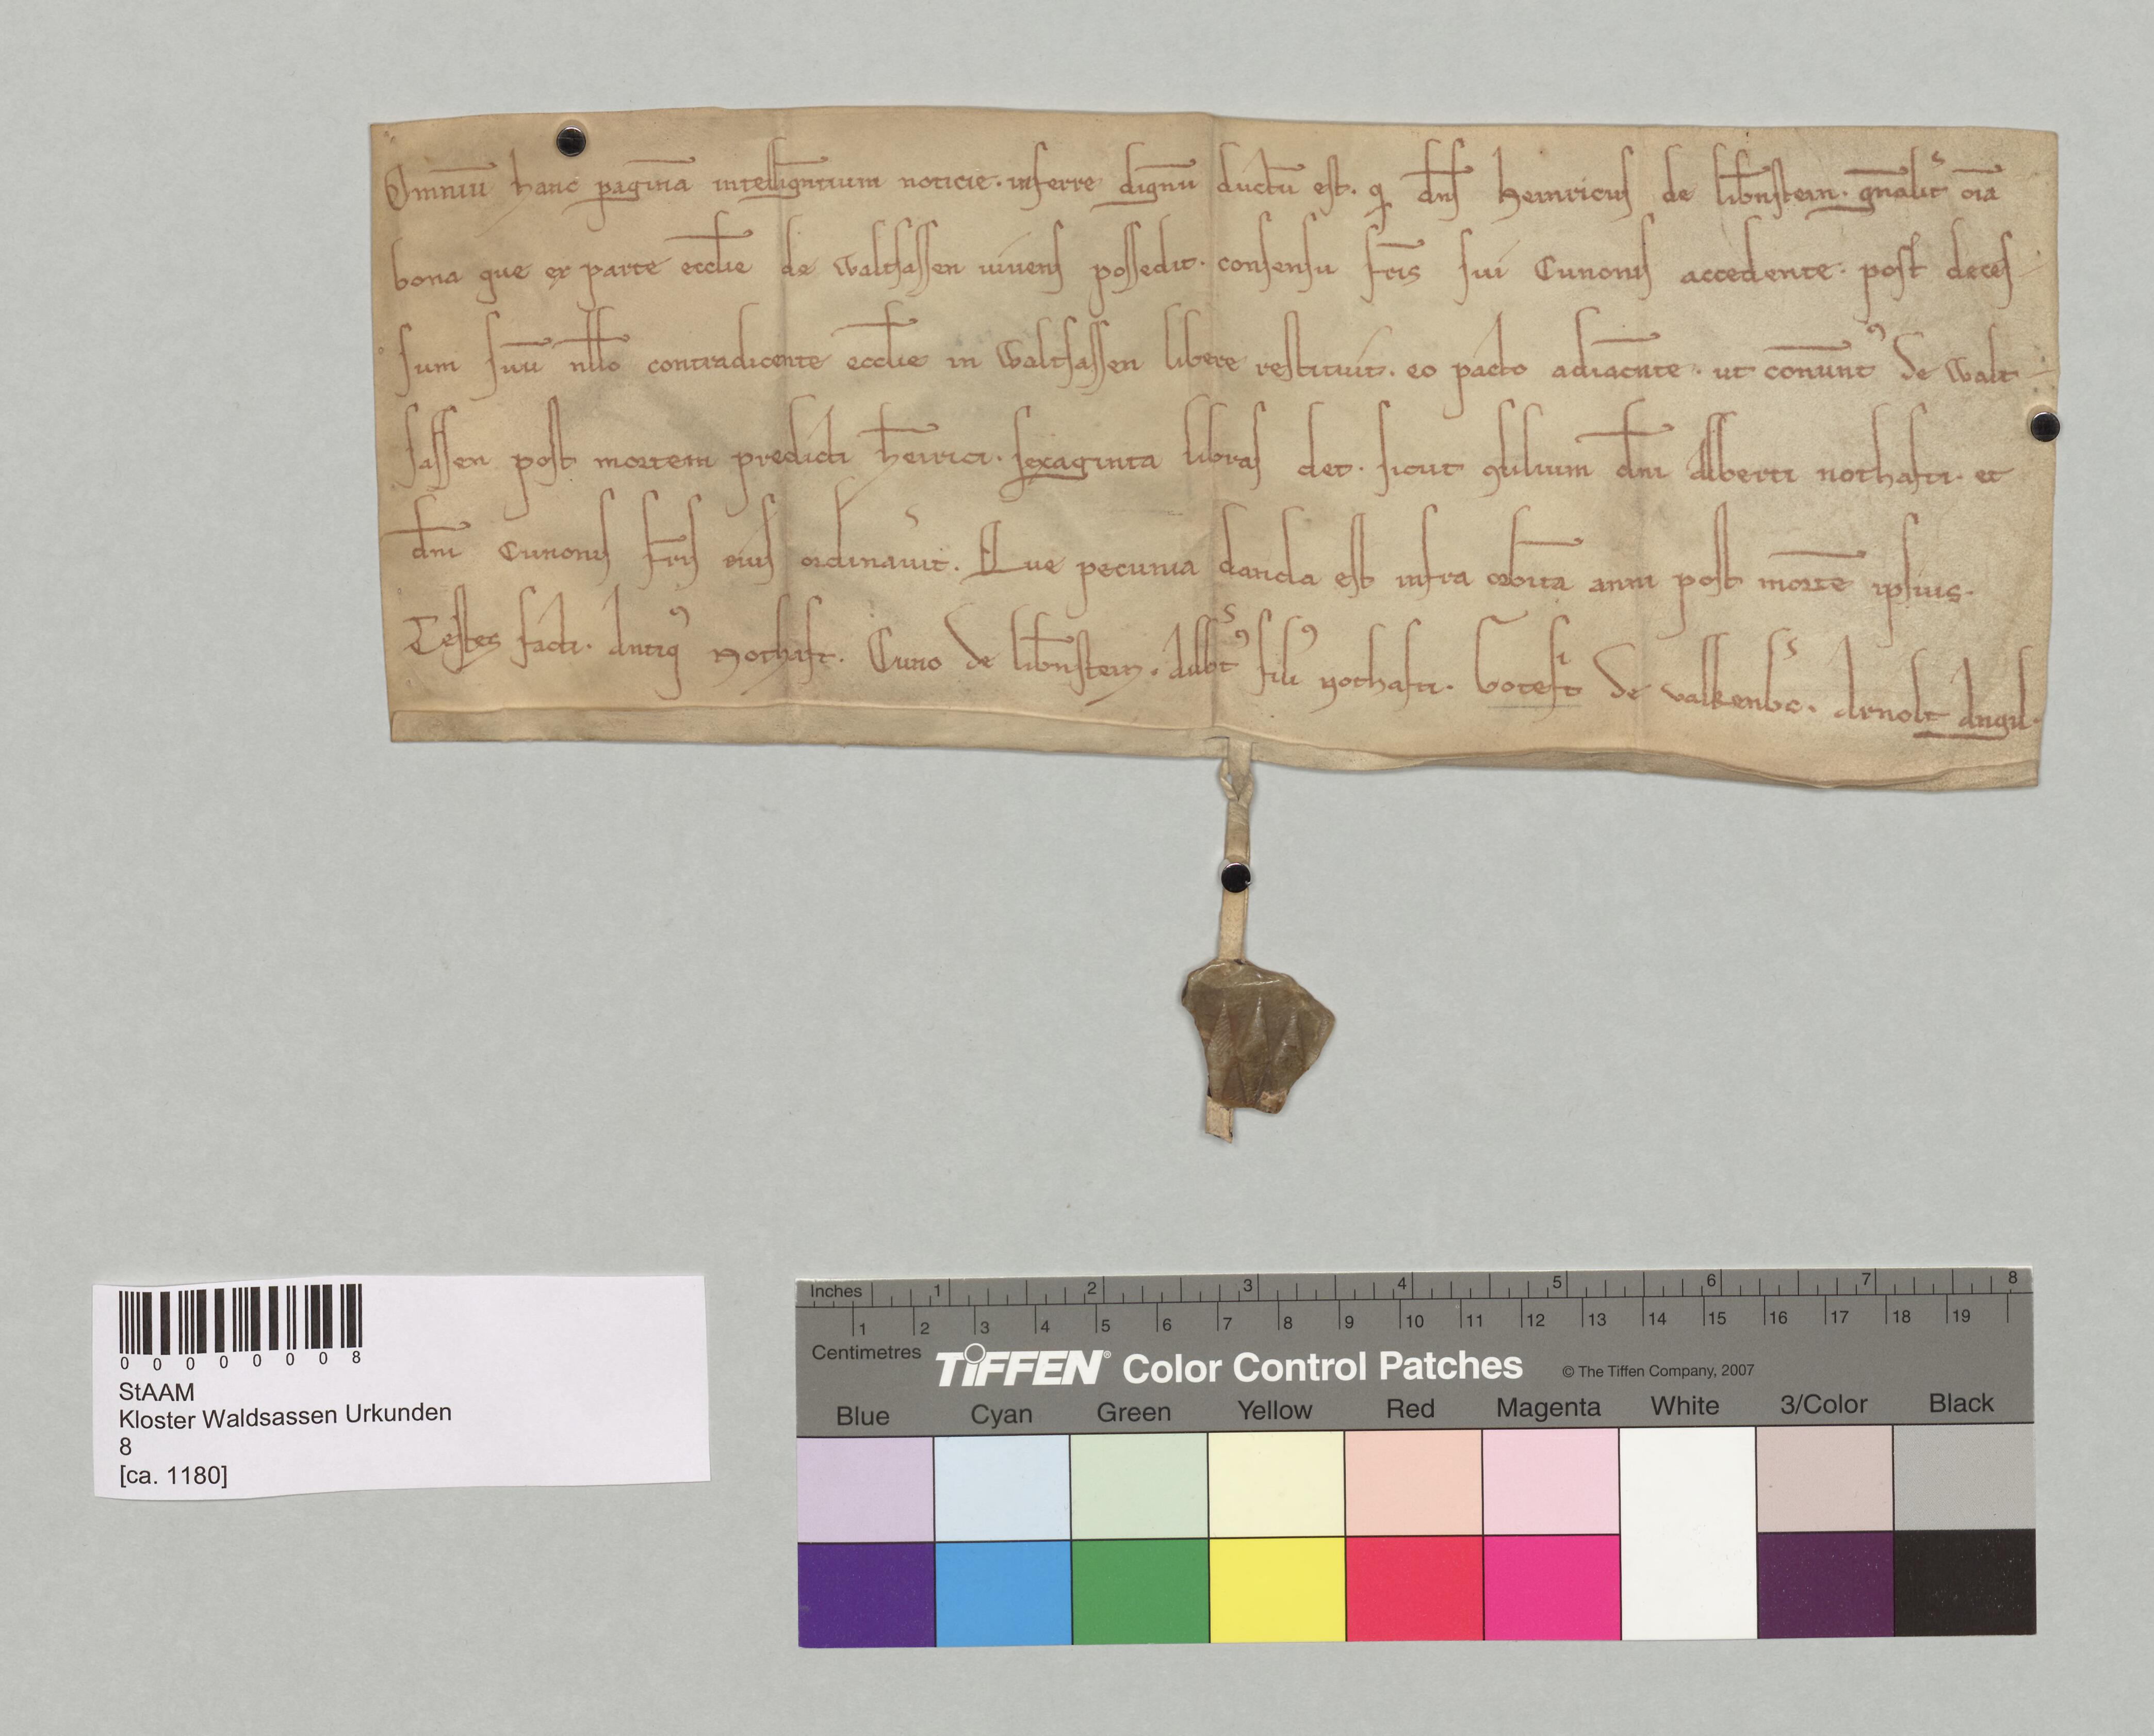 Omniū hanc paginā intelligntium noticie. inferre dignū ductū est. q dn̄s heinricus de libnstein. gn̄alit oīa
bona que ex parte eccłie de waltsassen uiuens possedit. consensu fr̄is sui Cunonis accedente. post deces
sum suū nłło contradicente eccłie in waltsassen libere restituit. eo pacto adiacn̄te. ut conūnt⁹ de walt
sassen post mortem predicti heinrici. sexaginta libras det. sicut filium dn̄i Alberti nothafti. et
dn̄i Cunonis fr̄is eius ordinauit. Que pecunia danda est infra orbita anni post mortē ipsius.
Testes facti. Antiq⁹ Nothaft. Cuno de libnstein. Albt⁹ fili⁹ nothafti. de valkenbc. Arnolt Angu.
StAAM
Kloster Waldsassen Urkunden
8
[ca. 1180]
0 0 0 0 0 0 0 8
Inches 1 2 3 4 5 6 7 8
1 2 3 4 5 6 7 8 9 10 11 12 13 14 15 16 17 18 19
Centimetres
TIFFEN® Color Control Patches © The Tiffen Company, 2007
Blue Cyan Green Yellow Red Magenta White 3/Color Black